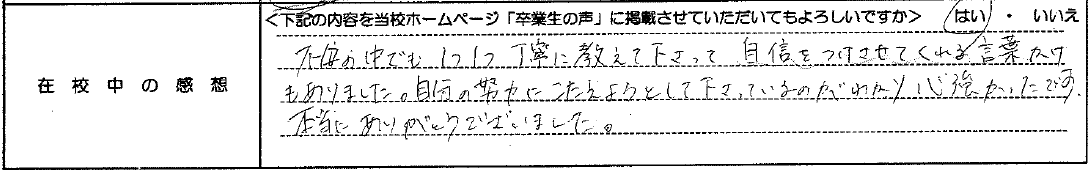 <下記の内容を当校ホームページ「卒業生の声」に掲載させていただいてもよろしいですか> はい ・ いいえ
在校中の感想
中でも1つ1つ丁寧に教えて下さって自信をつけさせてくれる言葉かけ
もありました。自分の努力にこたえようとして下さっているのがわかり心強かったです。
本当にありがとうございました。